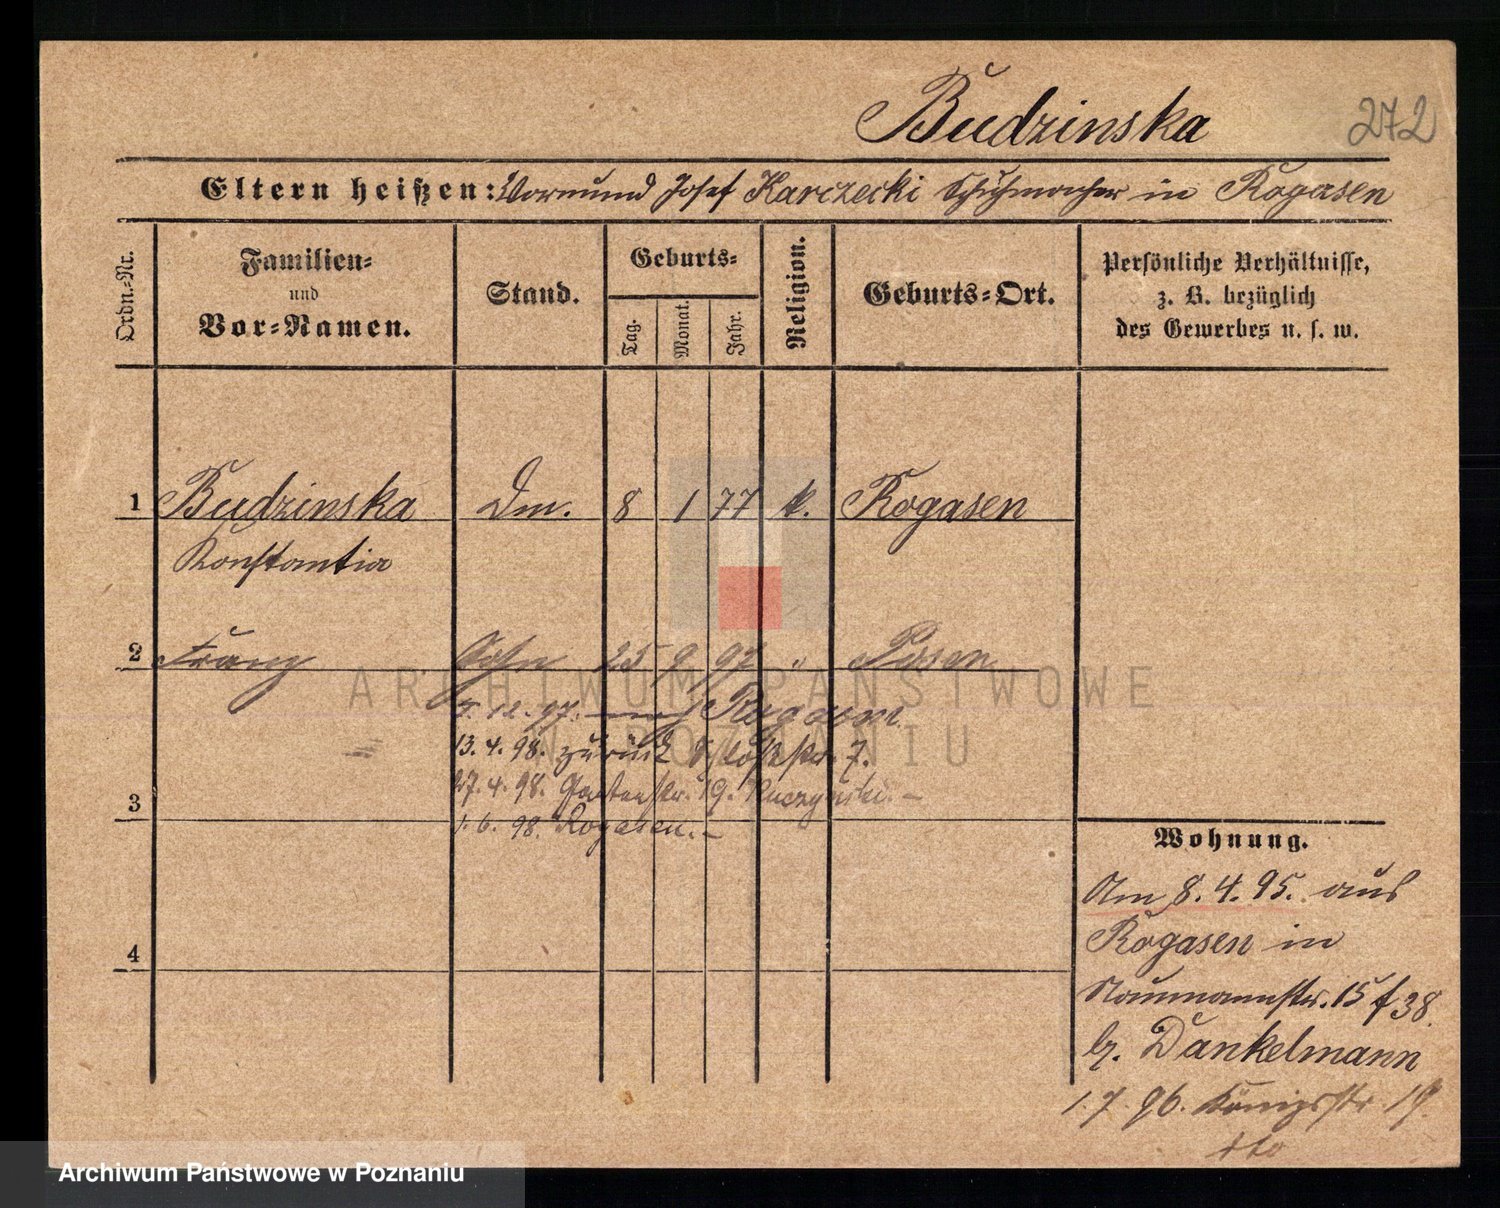 Budzinska 272
Eltern heißen: Vormund Josef Karczecki Schuhmacher in Rogasen
Ordn.-Nr.
Familien-
und
Vor-Namen.
Stand.
Geburts-
Tag.
Monat.
Jahr.
Religion.
Geburts-Ort.
Persönliche Verhältnisse,
z. B. bezüglich
des Gewerbes u. s. w.
1 Budzinska Dm. 8 1 77 k. Rogasen
Konstantia
2 Franz Sohn 25 9 97 " Posen
12. 97. nach Rogasen
13. 4. 98. zurück Schloßstr. 7.
27. 4. 98. Gartenstr. 19. Ruczynski. –
3
1. 6. 98. Rogasen. –
4
Wohnung.
Am 8. 4. 95. aus
Rogasen in
Naumannstr. 15 f 38.
b. Dankelmann
1. 7. 96. Königsstr. 19.
dto
ARCHIWUM PAŃSTWOWE
W POZNANIU
Archiwum Państwowe w Poznaniu